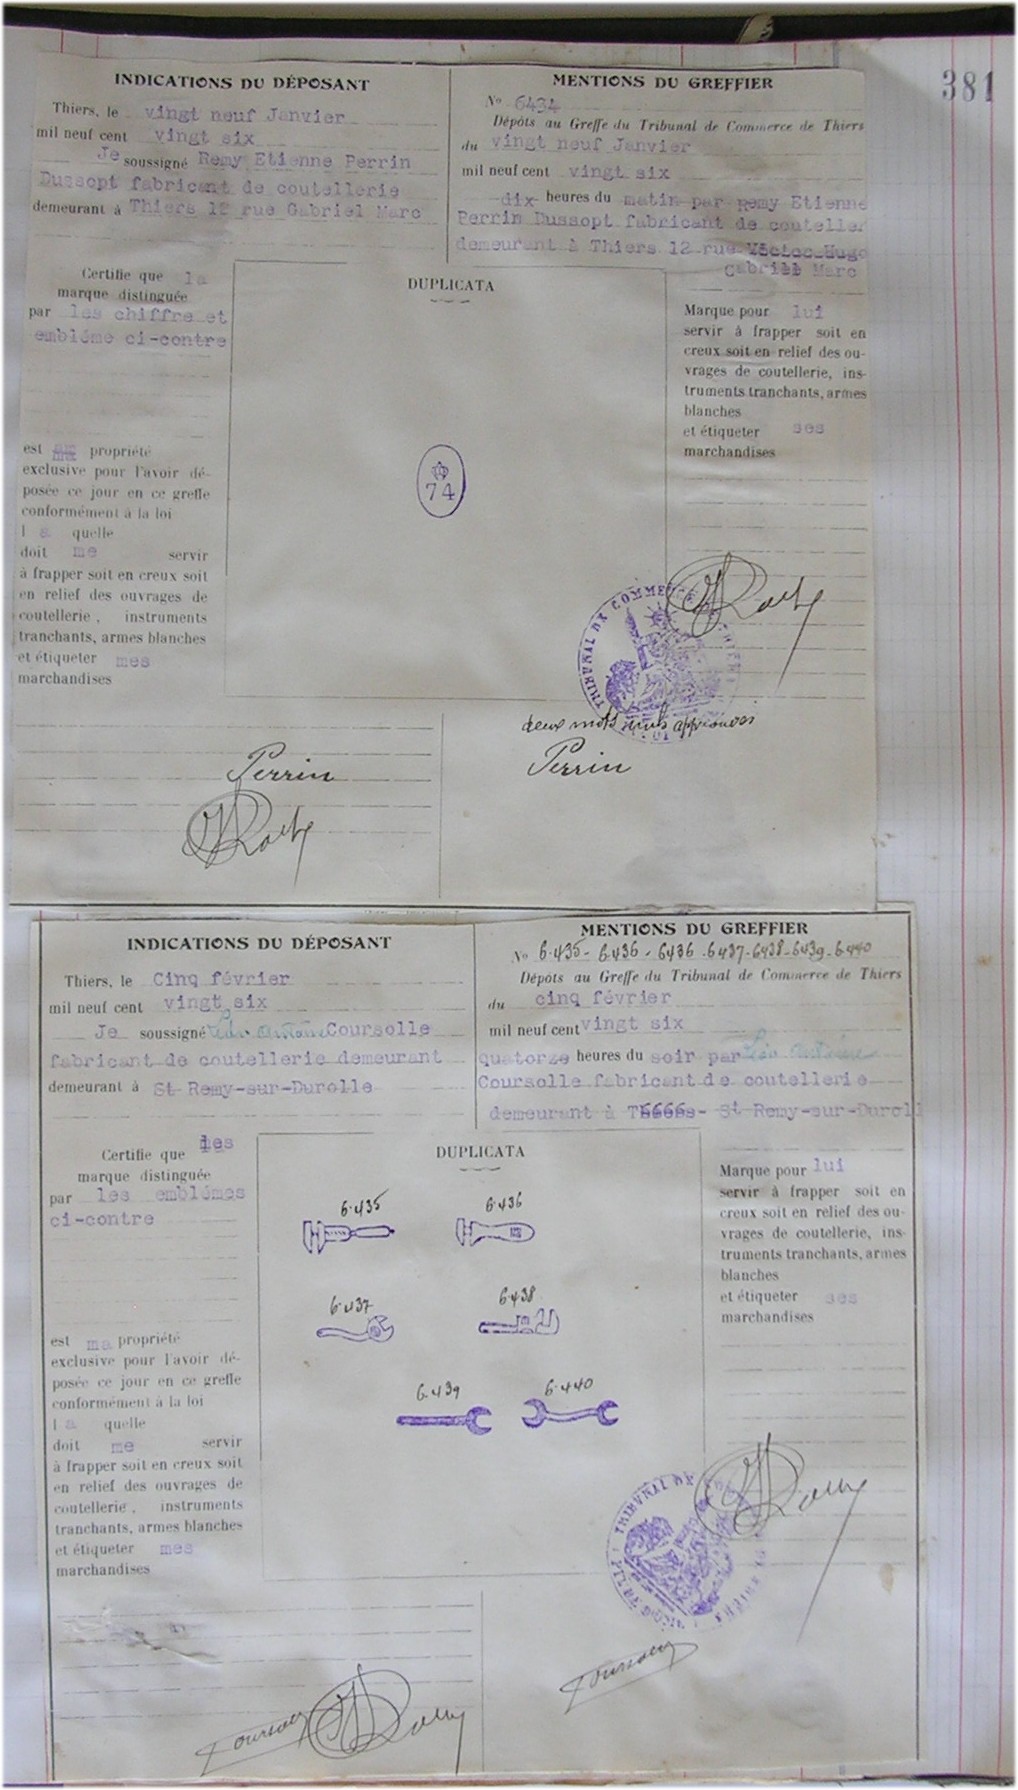 381
INDICATIONS DU DÉPOSANT
Thiers, le vingt neuf Janvier
mil neuf cent vingt six
Je soussigné Remy Etienne Perrin
Dussopt fabricant de coutellerie
demeurant à Thiers 12 rue Gabriel Marc
MENTIONS DU GREFFIER
No 6434
Dépôts au Greffe du Tribunal de Commerce de Thiers
du vingt neuf Janvier
mil neuf cent vingt six
dix heures du matin par Remy Etienne
Perrin Dussopt fabricant de couteller
demeurant à Thiers 12 rue Victor Hugo
Gabriel Marc
Certifie que la
marque distinguée
par les chiffre et
embléme ci-contre
est ma propriété
exclusive pour l'avoir dé-
posée ce jour en ce greffe
conformément à la loi
l a quelle
doit me servir
à frapper soit en creux soit
en relief des ouvrages de
coutellerie, instruments
tranchants, armes blanches
et étiqueter mes
marchandises
DUPLICATA
74
Marque pour lui
servir à frapper soit en
creux soit en relief des ou-
vrages de coutellerie, ins-
truments tranchants, armes
blanches
et étiqueter ses
marchandises
TRIBUNAL DE COMMERCE
deux mots nuls approuvés
Perrin
Perrin
INDICATIONS DU DÉPOSANT
Thiers, le Cinq février
mil neuf cent vingt six
Je soussigné Léon Antoine Coursolle
fabricant de coutellerie demeurant
demeurant à St Remy-sur-Durolle
MENTIONS DU GREFFIER
No 6.435 - 6.436 - 6436 - 6437 - 6438 - 6439 - 6.440
Dépôts au Greffe du Tribunal de Commerce de Thiers
du cinq février
mil neuf cent vingt six
quatorze heures du soir par Léon Antoine
Coursolle fabricant de coutellerie
demeurant à St Remy-sur-Duroll
Certifie que les
marque distinguée
par les emblémes
ci-contre
est ma propriété
exclusive pour l'avoir dé-
posée ce jour en ce greffe
conformément à la loi
l a quelle
doit me servir
à frapper soit en creux soit
en relief des ouvrages de
coutellerie, instruments
tranchants, armes blanches
et étiqueter mes
marchandises
DUPLICATA
6.435 6.436
6.437 6.438
6.439 6.440
Marque pour lui
servir à frapper soit en
creux soit en relief des ou-
vrages de coutellerie, ins-
truments tranchants, armes
blanches
et étiqueter ses
marchandises
TRIBUNAL DE